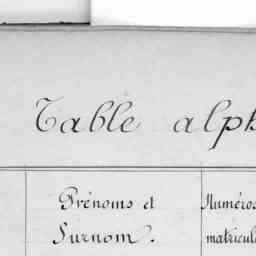 Table alph
Prénoms et
Surnom.
Numéros
matricul